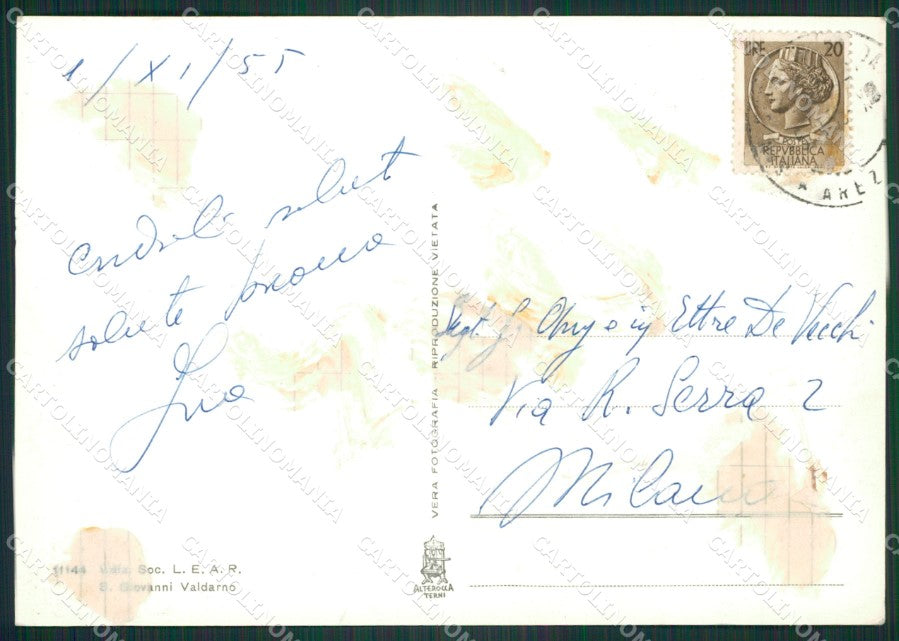 1/XI/55
LIRE 20
POSTE
REPVBBLICA
ITALIANA
AREZ
cordiali saluti
Via R. Serra 2
Milano
Ettore De Vecchi
VERA FOTOGRAFIA - RIPRODUZIONE VIETATA
11144 Soc. L. E. A. R.
S. Giovanni Valdarno
ALTEROCCA
TERNI
CARTOLINOMANIA